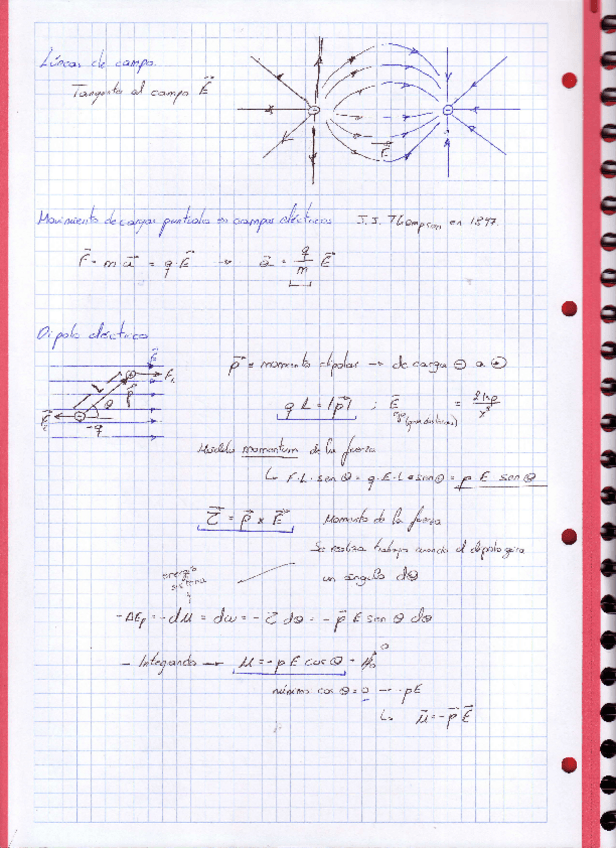 Líneas de campo.
Tangente al campo E⃗
E⃗
Movimiento de cargas puntuales en campos eléctricos J.J. Thompson en 1897.
F⃗ = m a⃗ = q · E⃗ → a⃗ = q/m E⃗
Dipolo eléctrico
E⃗
F₊
L
p⃗
θ
-q
p⃗ = momento dipolar → de carga ⊖ a ⊕
q L = |p⃗| ; E⃗ (grandes distancias) = 2kp/x³
Módulo momentum de la fuerza
↳ F·L·senθ = q·E·L·senθ = p E senθ
τ⃗ = p⃗ x E⃗ Momento de la fuerza
Se realiza trabajo cuando el dipolo gira
un ángulo dθ
energía
sistema
-ΔEp = -dU = dw = -τ⃗ dθ = -p E senθ dθ
- Integrando → U = -pE cosθ + U₀ 0
mínimo cosθ = 0 → -pE
↳ U⃗ = -p⃗ E⃗